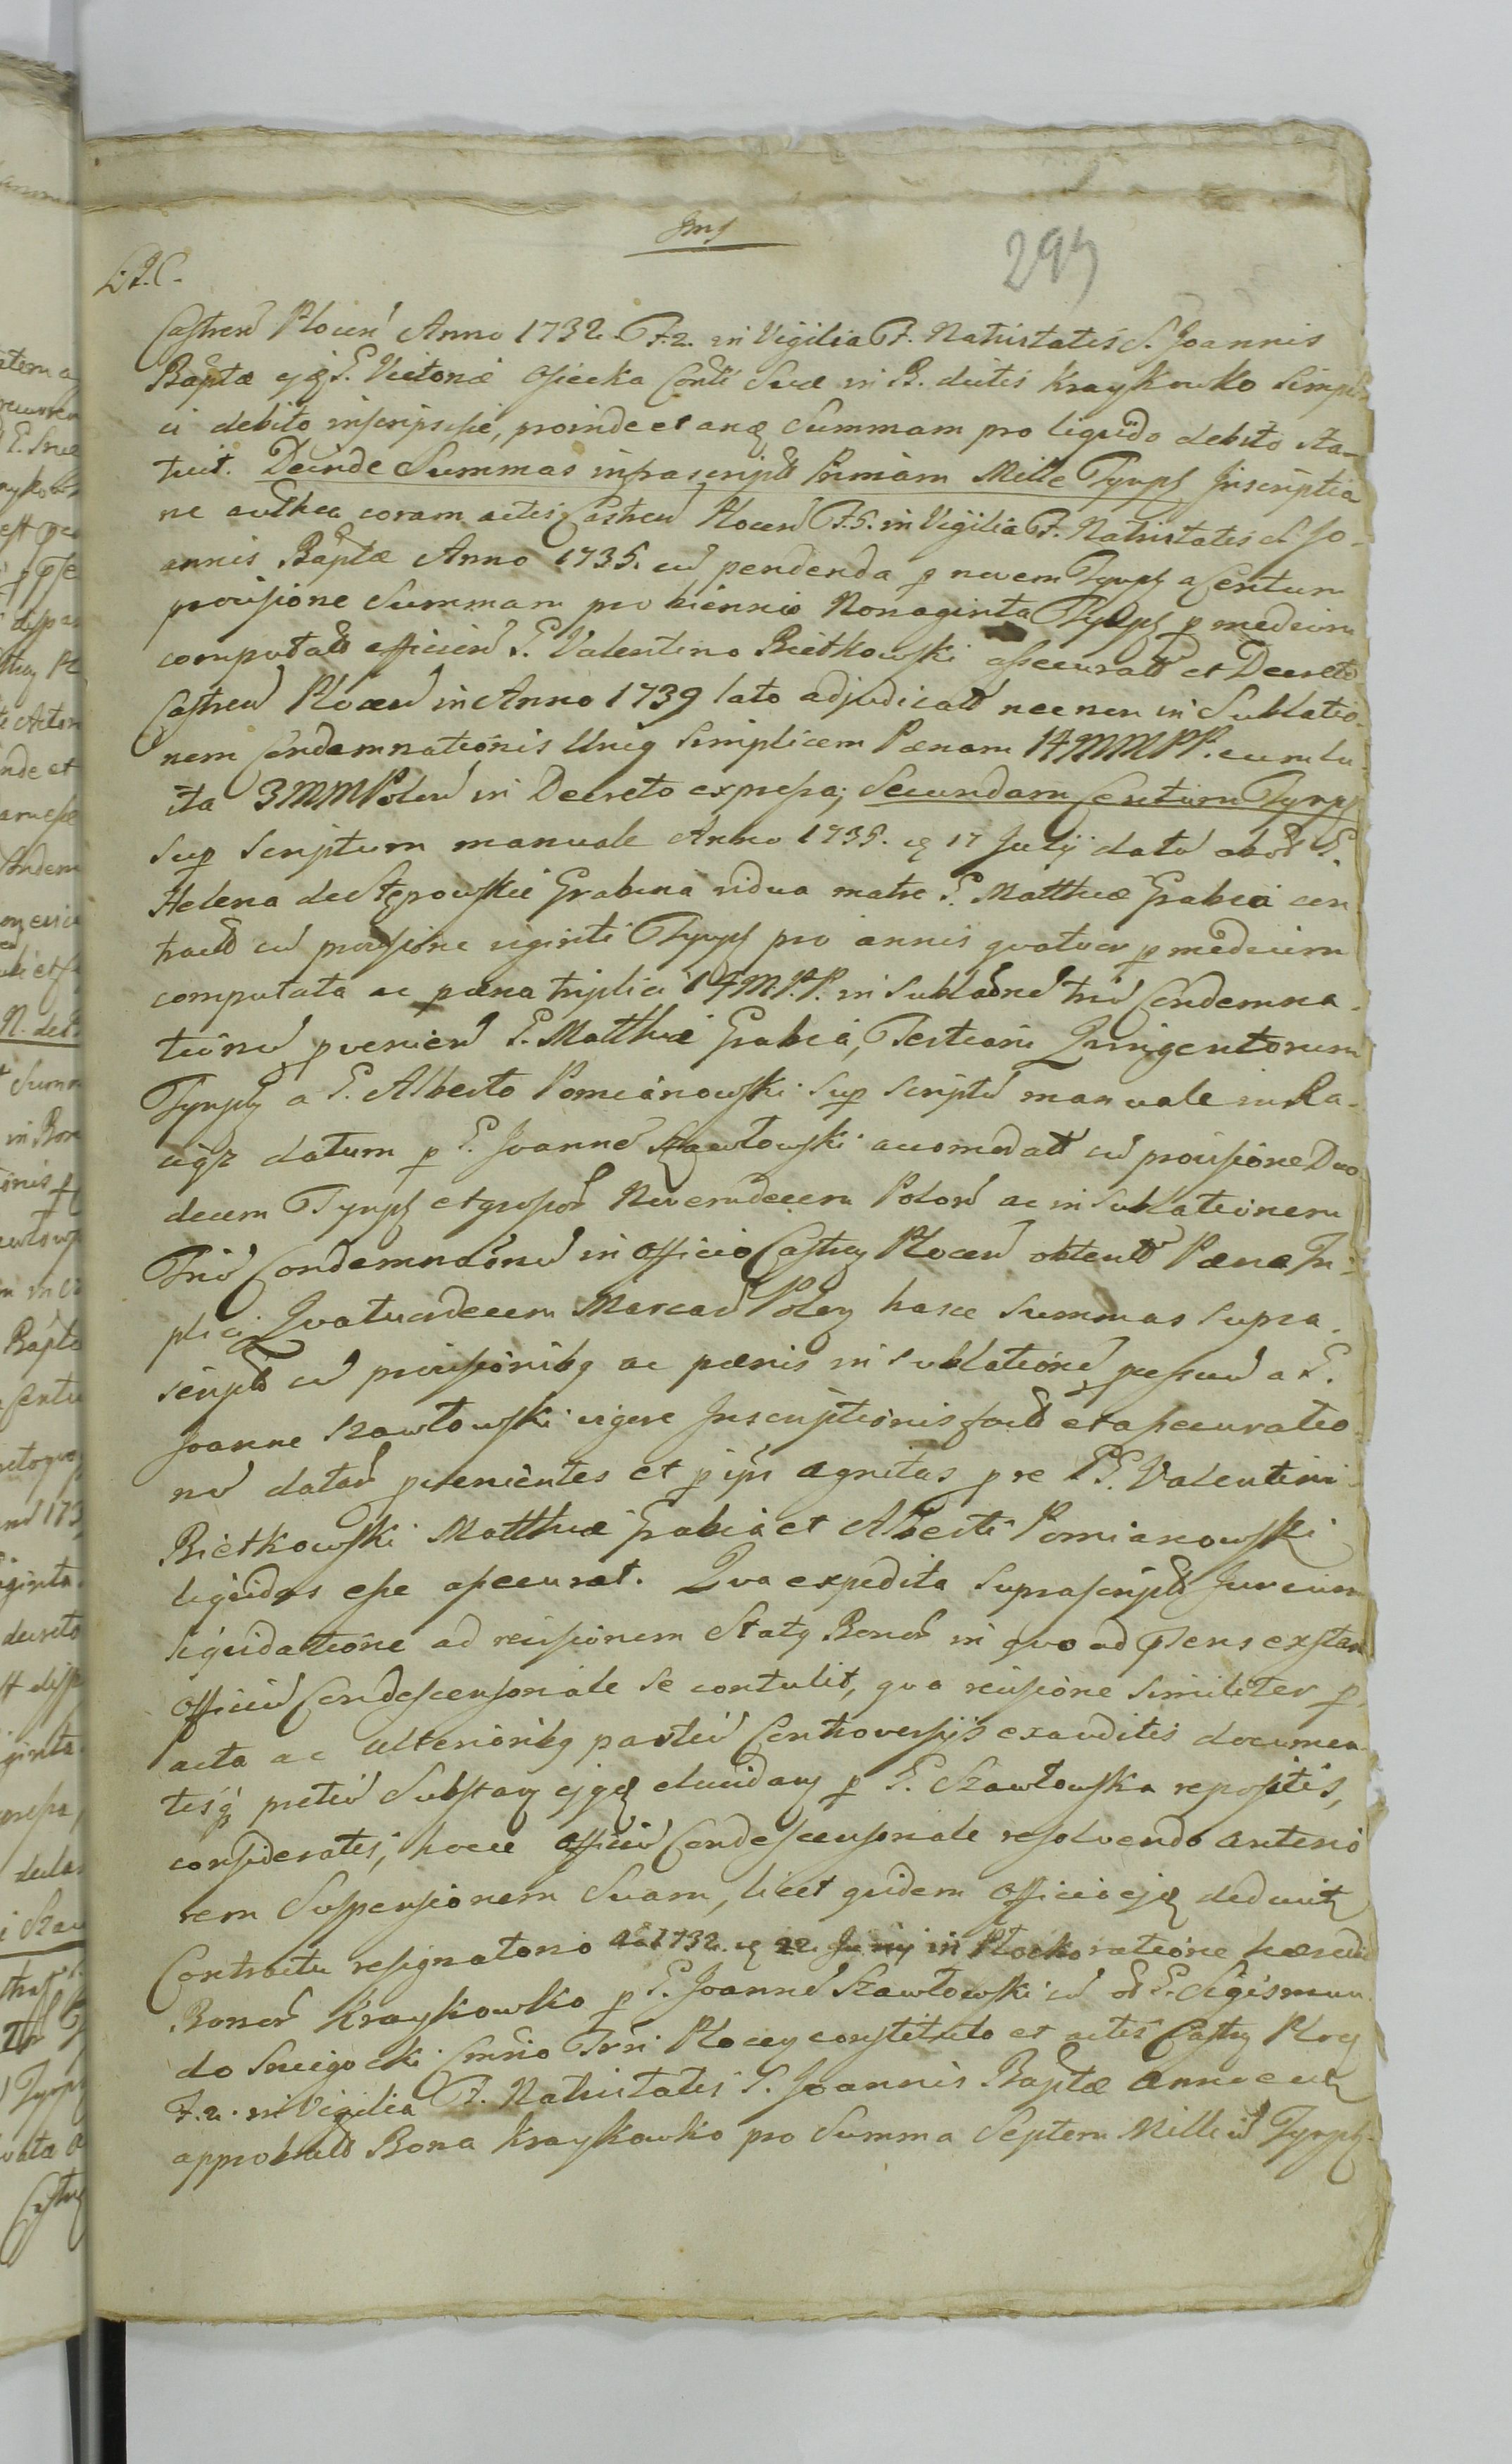 Ims
295
L: R. C.
Castren Plocen Anno 1732. F. 2. in Vigilia F. Nativitatis S. Joannis
Baptæ ejq G. Victoriæ Osiecka Conti Suæ in B. dictis Kraykowko simpli
ci debito inscripsisse, proinde et anq Summam pro liquido debito sta-
tuit. Deinde Summas infrascript Primam Mille Tynph Inscriptio
ne authen coram actis Castren Plocen F. 5. in Vigilia F. Nativitatis S. Jo-
annis Baptæ Anno 1735. cu pendenda p novem Tynph a Centum
provisione Summam pro biennio Nonaginta Tynph p medium
computat efficien G. Valentino Bietkowski assecurat et Decreto
Castren Plocen in Anno 1739 lato adjudicat nec non in Sublatio-
nem Condemnationis Uniq simplicem Pænam 14 MMPP. cum lu-
ita 3 MM Polon in Decreto expressa; Secundam Centum Tynph
sup scriptum manuale Anno 1735. 17 Julij datu ab G.
Helena de Stępowskie Grabina vidua matre G. Matthæ Grabia con
tract cu provisione viginti Tynph pro annis quatuor p medium
computata ac pæna triplici 14 M.P.P. in Sublaone triu Condemna-
tionu pvenien G. Matthæi Grabia, Tertiam Quingentorum
Tynph a G. Alberto Pomianowski sup scriptu manuale in Ra-
ciąz datum p G. Joanne Szawłowski accomodat cu provisione Duo
decem Tynph et grossor Novemdecem Polon ac in sublationem
Triu Condemnaonu in Officio Castren Plocen obtent Pæna Tri-
plici Quatuordecem Marcar Polon hasce Summas supra-
script cu provisionibq ac pænis in sublatione pressar a G.
Joanne Szawłowski vigore Inscriptionis fact et assecuratio
nu datar pvenientes et p ipsi agnitas p re GG. Valentini
Bietkowski Matthæ Grabia et Alberti Pomianowski
liquidas esse assecurat. Qua expedita suprascript Jurium
liquidatione ad revisionem Statq Bonor in quo ad psens exstan
Officiu Condescensoriale se contulit, qua revisione similiter p
acta ac ulterioribq partiu Controversijs exauditis documen
tisq pretiu Substan ejqe elucidan p G. Szawłowska repositis,
consideratis, hocce Officiu Condescensoriale resolvendo anterio
rem Suspensionem Suam, licet quidem Officio ejq deducit
Contractu resignatorio Ao 1732. 22. Junij in Plocko ratione hæredit
Bonor Kraykowko p G. Joanne Szawłowski cu G. Sigismun-
do Sniegocki Plocen constituto et actis Castren Plocen
F. 2. in Vigilia F. Nativitatis S. Joannis Baptæ Anno eod
approbat Bona Kraykowko pro Summa Septem Milliu Tynph